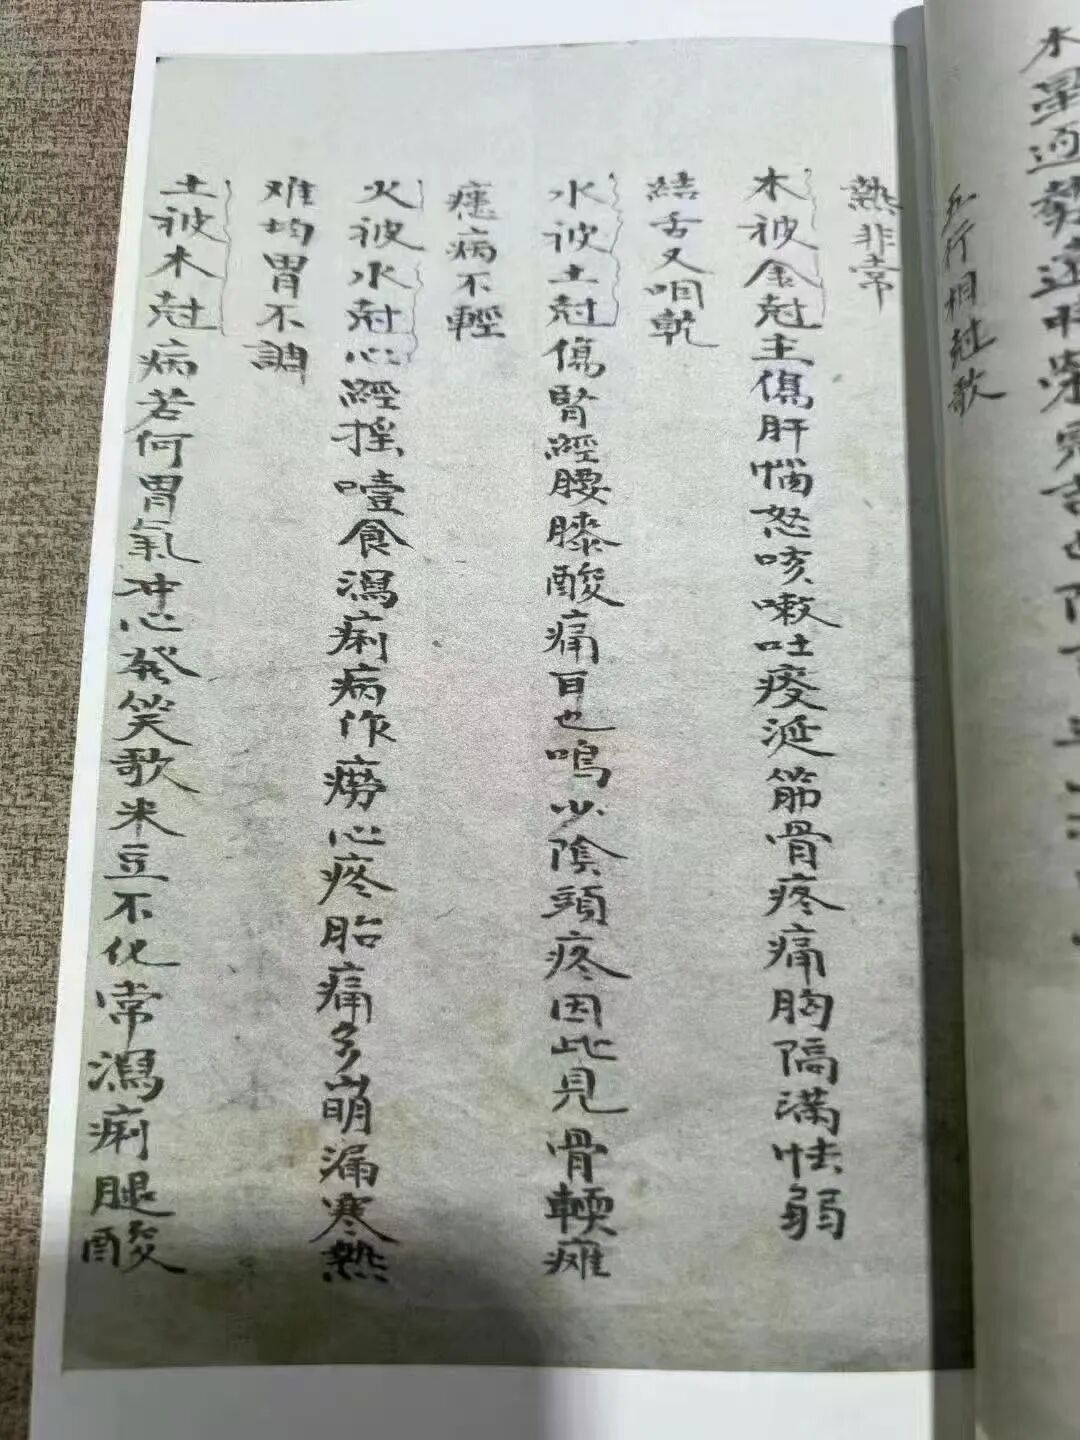 五行相尅歌
熱非常
木被金尅主傷肝惱怒咳嗽吐痰涎筋骨疼痛胸隔满怯弱
結舌又咽乾
水被土尅傷腎經腰膝酸痛耳也鳴少陰頭疼因此見骨輭瘫
痣病不輕
火被水尅心經摇噎食瀉痢病作癆心疼胎痛多崩漏寒熱
难均胃不調
土被木尅病若何胃氣冲心發笑歌米豆不化常瀉痢腿酸